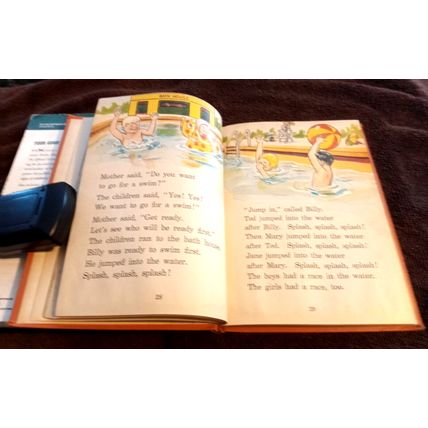 BATH HOUSE
Mother said, "Do you want
to go for a swim?"
The children said, "Yes! Yes!
We want to go for a swim!"
Mother said, "Get ready.
Let's see who will be ready first."
The children ran to the bath house.
Billy was ready to swim first.
He jumped into the water.
Splash, splash, splash!
28
"Jump in," called Billy.
Ted jumped into the water
after Billy. Splash, splash, splash!
Then Mary jumped into the water
after Ted. Splash, splash, splash!
Jane jumped into the water
after Mary. Splash, splash, splash!
The boys had a race in the water.
The girls had a race, too.
29